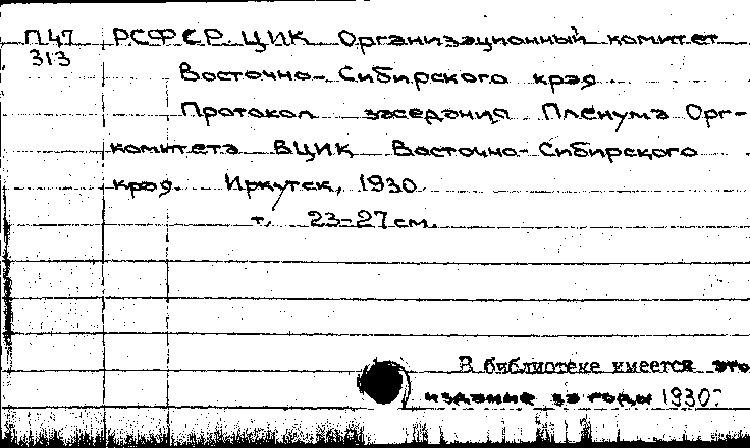 П47 РСФСР. ЦИК Организационный комитет
313
Восточно-Сибирского края.
Протокол заседания Пленума Орг-
комитета ВЦИК Восточно-Сибирского
края. Иркутск, 1930.
т. 23-27см.
В библиотеке имеется это
издание за годы 1930.